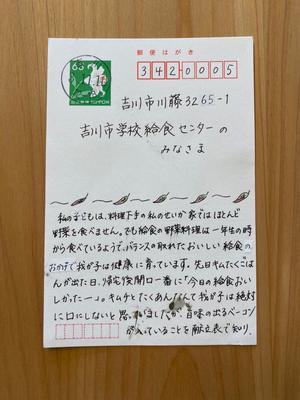 郵便はがき
63
NIPPON
342-0005
吉川市川藤3265-1
吉川市学校給食センターの
みなさま
私の子どもは、料理下手の私のせいか家ではほとんど
野菜を食べません。でも給食の野菜料理は一年生の時
から食べているようで、バランスの取れたおいしい給食の
おかげで我が子は健康に育っています。先日キムたくごは
んが出た日、帰宅後開口一番に「今日の給食おい
しかったー」。キムチとたくあんなんて我が子は絶対
に口にしないと思っていましたが、旨味の出るベーコン
が入っていることを献立表で知り、